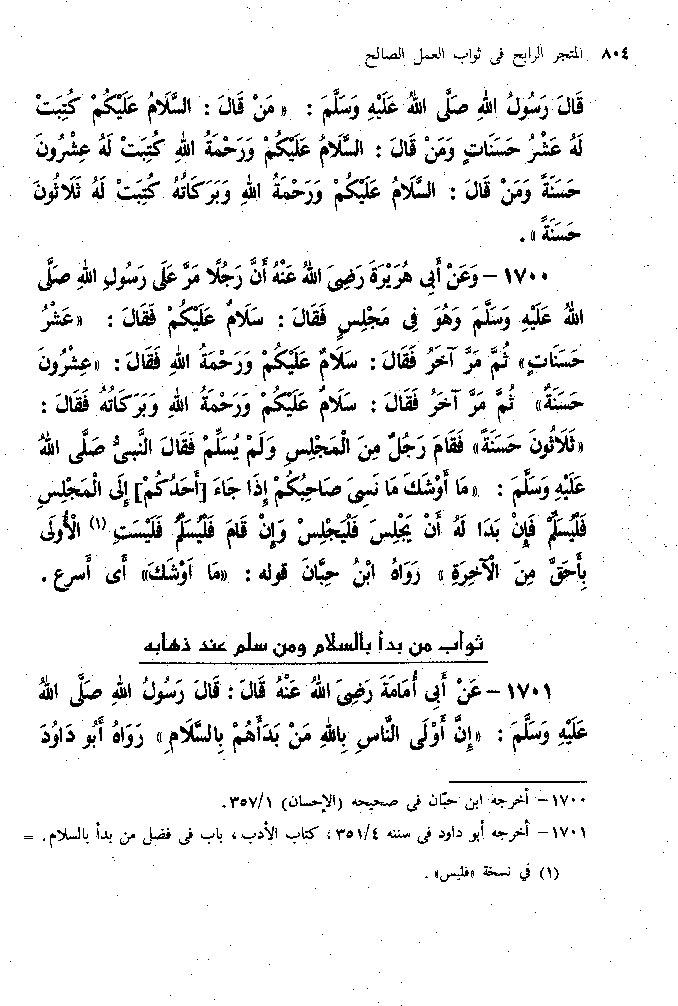 ٨٠٤ المتجر الرابح فى ثواب العمل الصالح
قَالَ رَسُولُ اللهِ صَلَّى اللهُ عَلَيْهِ وَسَلَّمَ : « مَنْ قَالَ : السَّلَامُ عَلَيْكُمْ كُتِبَتْ
لَهُ عَشْرُ حَسَنَاتٍ وَمَنْ قَالَ : السَّلَامُ عَلَيْكُمْ وَرَحْمَةُ اللهِ كُتِبَتْ لَهُ عِشْرُونَ
حَسَنَةً وَمَنْ قَالَ : السَّلَامُ عَلَيْكُمْ وَرَحْمَةُ اللهِ وَبَرَكَاتُهُ كُتِبَتْ لَهُ ثَلَاثُونَ
حَسَنَةً » .
١٧٠٠ – وَعَنْ أَبِي هُرَيْرَةَ رَضِىَ اللهُ عَنْهُ أَنَّ رَجُلًا مَرَّ عَلَى رَسُولِ اللهِ صَلَّى
اللهُ عَلَيْهِ وَسَلَّمَ وَهُوَ فِى مَجْلِسٍ فَقَالَ : سَلَامٌ عَلَيْكُمْ فَقَالَ : «عَشْرُ
حَسَنَاتٍ» ثُمَّ مَرَّ آخَرُ فَقَالَ : سَلَامٌ عَلَيْكُمْ وَرَحْمَةُ اللهِ فَقَالَ : «عِشْرُونَ
حَسَنَةً» ثُمَّ مَرَّ آخَرُ فَقَالَ : سَلَامٌ عَلَيْكُمْ وَرَحْمَةُ اللهِ وَبَرَكَاتُهُ فَقَالَ :
«ثَلَاثُونَ حَسَنَةً» فَقَامَ رَجُلٌ مِنَ الْمَجْلِسِ وَلَمْ يُسَلِّمْ فَقَالَ النَّبِىُّ صَلَّى اللهُ
عَلَيْهِ وَسَلَّمَ : «مَا أَوْشَكَ مَا نَسِىَ صَاحِبُكُمْ إِذَا جَاءَ [أَحَدُكُمْ] إِلَى الْمَجْلِسِ
فَلْيُسَلِّمْ فَإِنْ بَدَا لَهُ أَنْ يَجْلِسَ فَلْيَجْلِسْ وَإِنْ قَامَ فَلْيُسَلِّمْ فَلَيْسَتِ (١) الْأُولَى
بِأَحَقَّ مِنَ الْآخِرَةِ » رَوَاهُ ابْنُ حِبَّانَ قوله : «مَا أَوْشَكَ» أى أسرع .
ثواب من بدأ بالسلام ومن سلم عند ذهابه
١٧٠١ – عَنْ أَبِي أُمَامَةَ رَضِىَ اللهُ عَنْهُ قَالَ : قَالَ رَسُولُ اللهِ صَلَّى اللهُ
عَلَيْهِ وَسَلَّمَ : «إِنَّ أَوْلَى النَّاسِ بِاللهِ مَنْ بَدَأَهُمْ بِالسَّلَامِ» رَوَاهُ أَبُو دَاوُدَ
١٧٠٠ – أخرجه ابن حبّان فى صحيحه (الإحسان) ٣٥٧/١ .
١٧٠١ – أخرجه أبو داود فى سننه ٣٥١/٤ ، كتاب الأدب ، باب فى فضل من بدأ بالسلام . =
(١) في نسخة «فليس» .